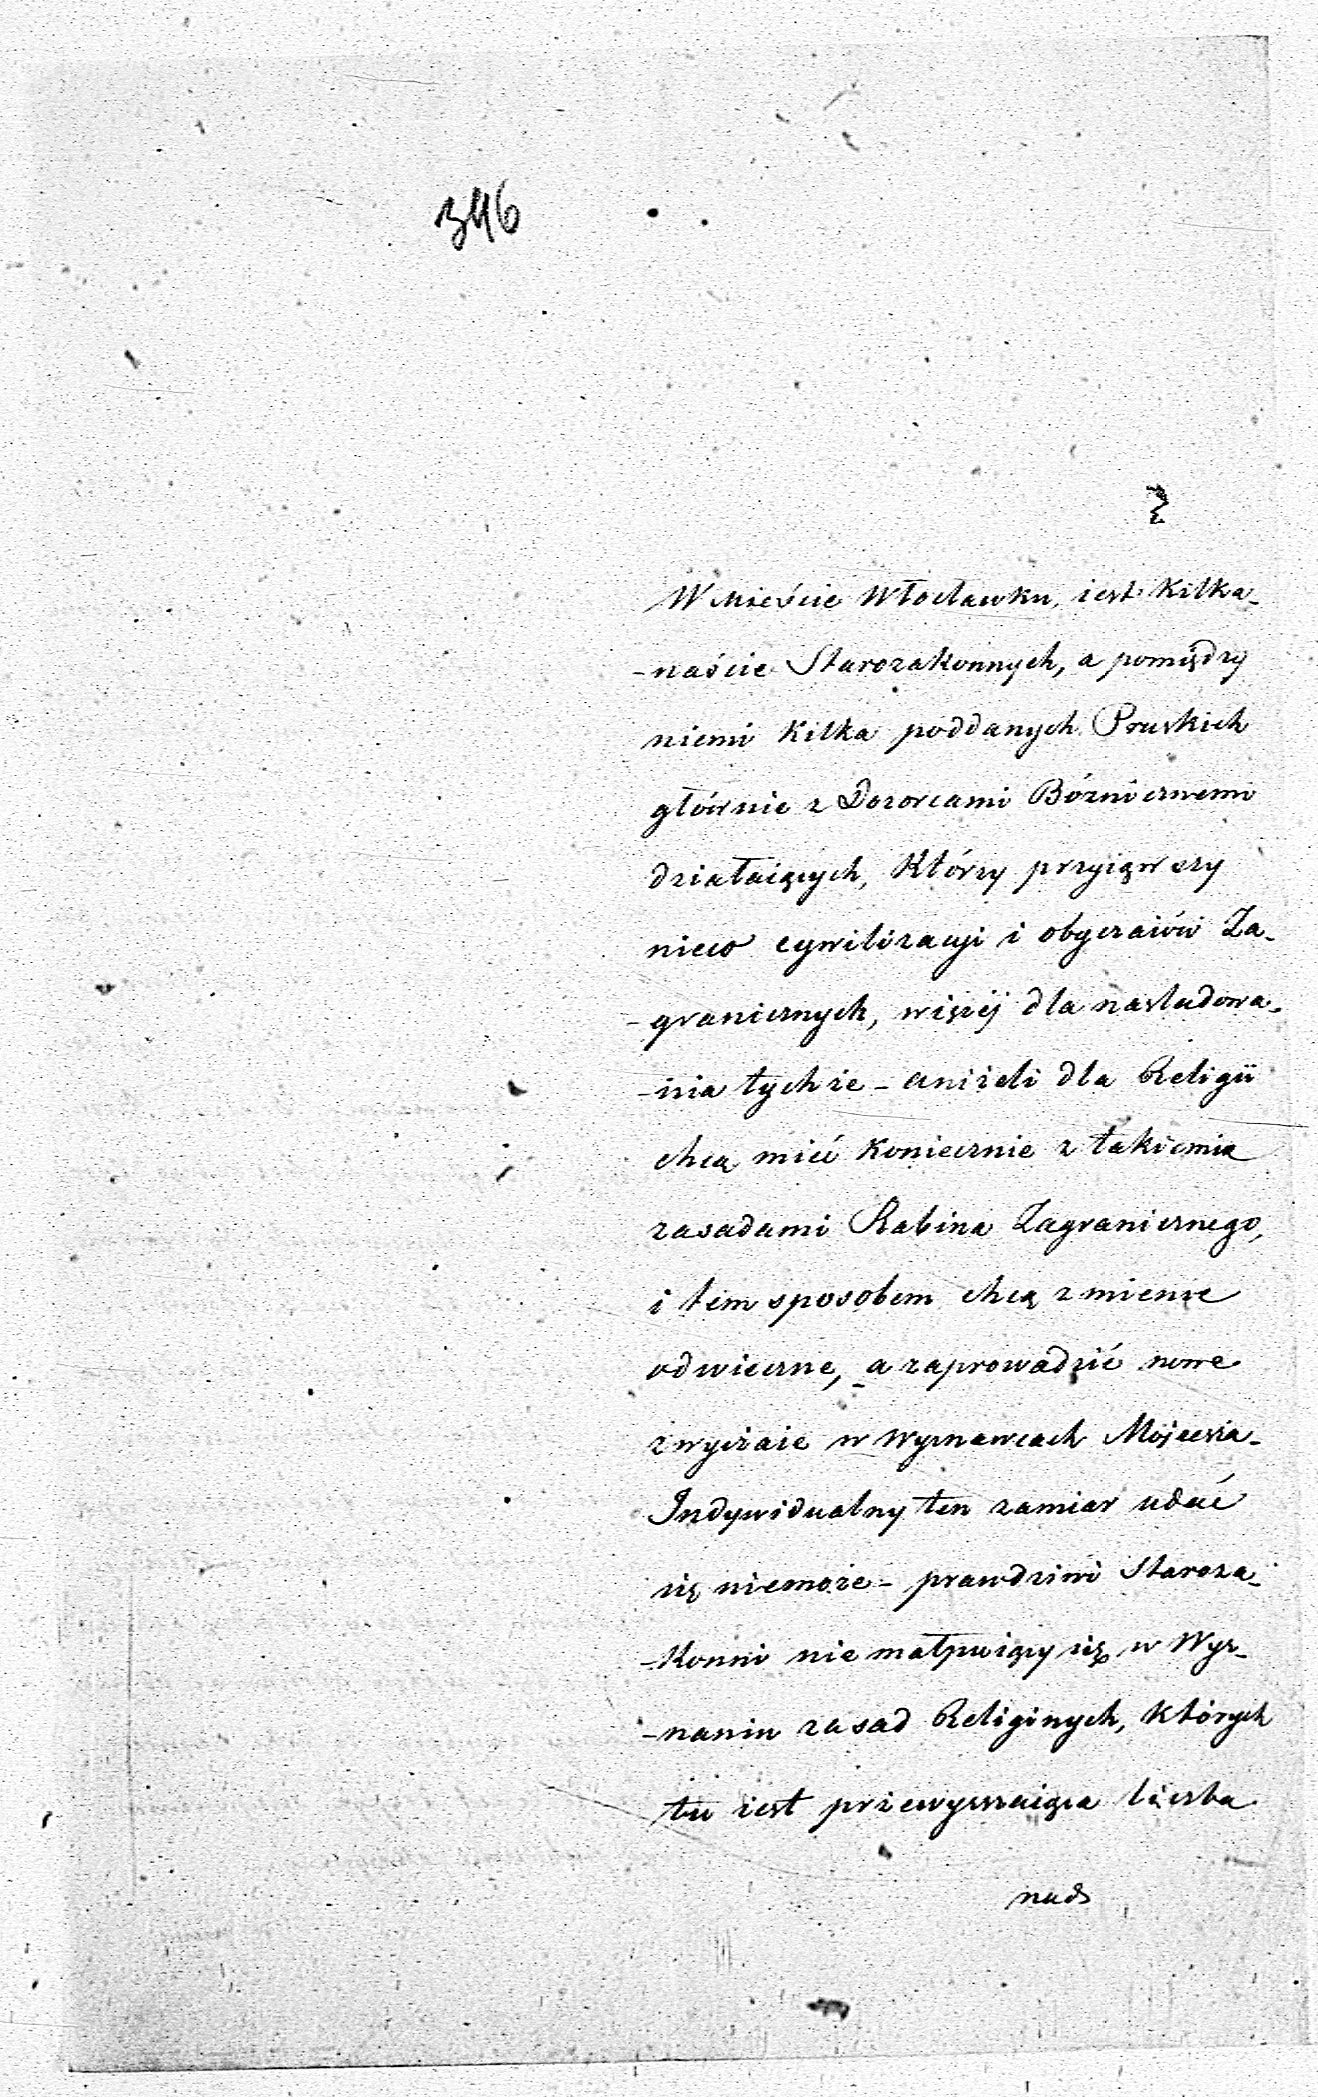 346
W Mieście Włocławku, iest Kilka-
-naście Starozakonnych, a pomiędzy
niemi Kilka poddanych Pruskich
głównie z Dozorcami Bóżnicznemi
działaiących, Którzy przyiąwszy
nieco cywilizacyi i obyczaiów Za-
-granicznych, więcéj dla nasladowa-
-nia tychże - aniżeli dla Religii
chcą mieć Koniecznie z takiemiż
zasadami Rabina Zagranicznego,
i tem sposobem chcą zmienić
odwieczne, - a zaprowadzić nowe
zwyczaie w Wyznawcach Mojżesza -
Indywidualny ten zamiar udać
się niemoże - prawdziwi Staroza-
-Konni nie małpuiący się w Wyz-
-naniu zasad Religinych, których
tu iest przewyższaiąca liczba
nad